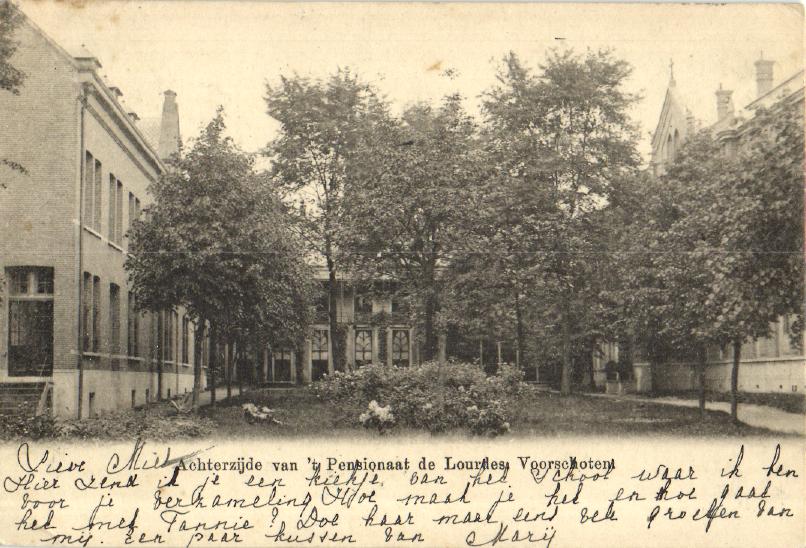 Achterzijde van 't Pensionaat de Lourdes, Voorschoten.
Lieve Mies
Hier zend ik je een kiekje van het School waar ik ben
voor je verzameling. Hoe maak je het en hoe gaat
het met Tannie? Doe haar maar eens vele groeten van
mij. Een paar kussen van Marij